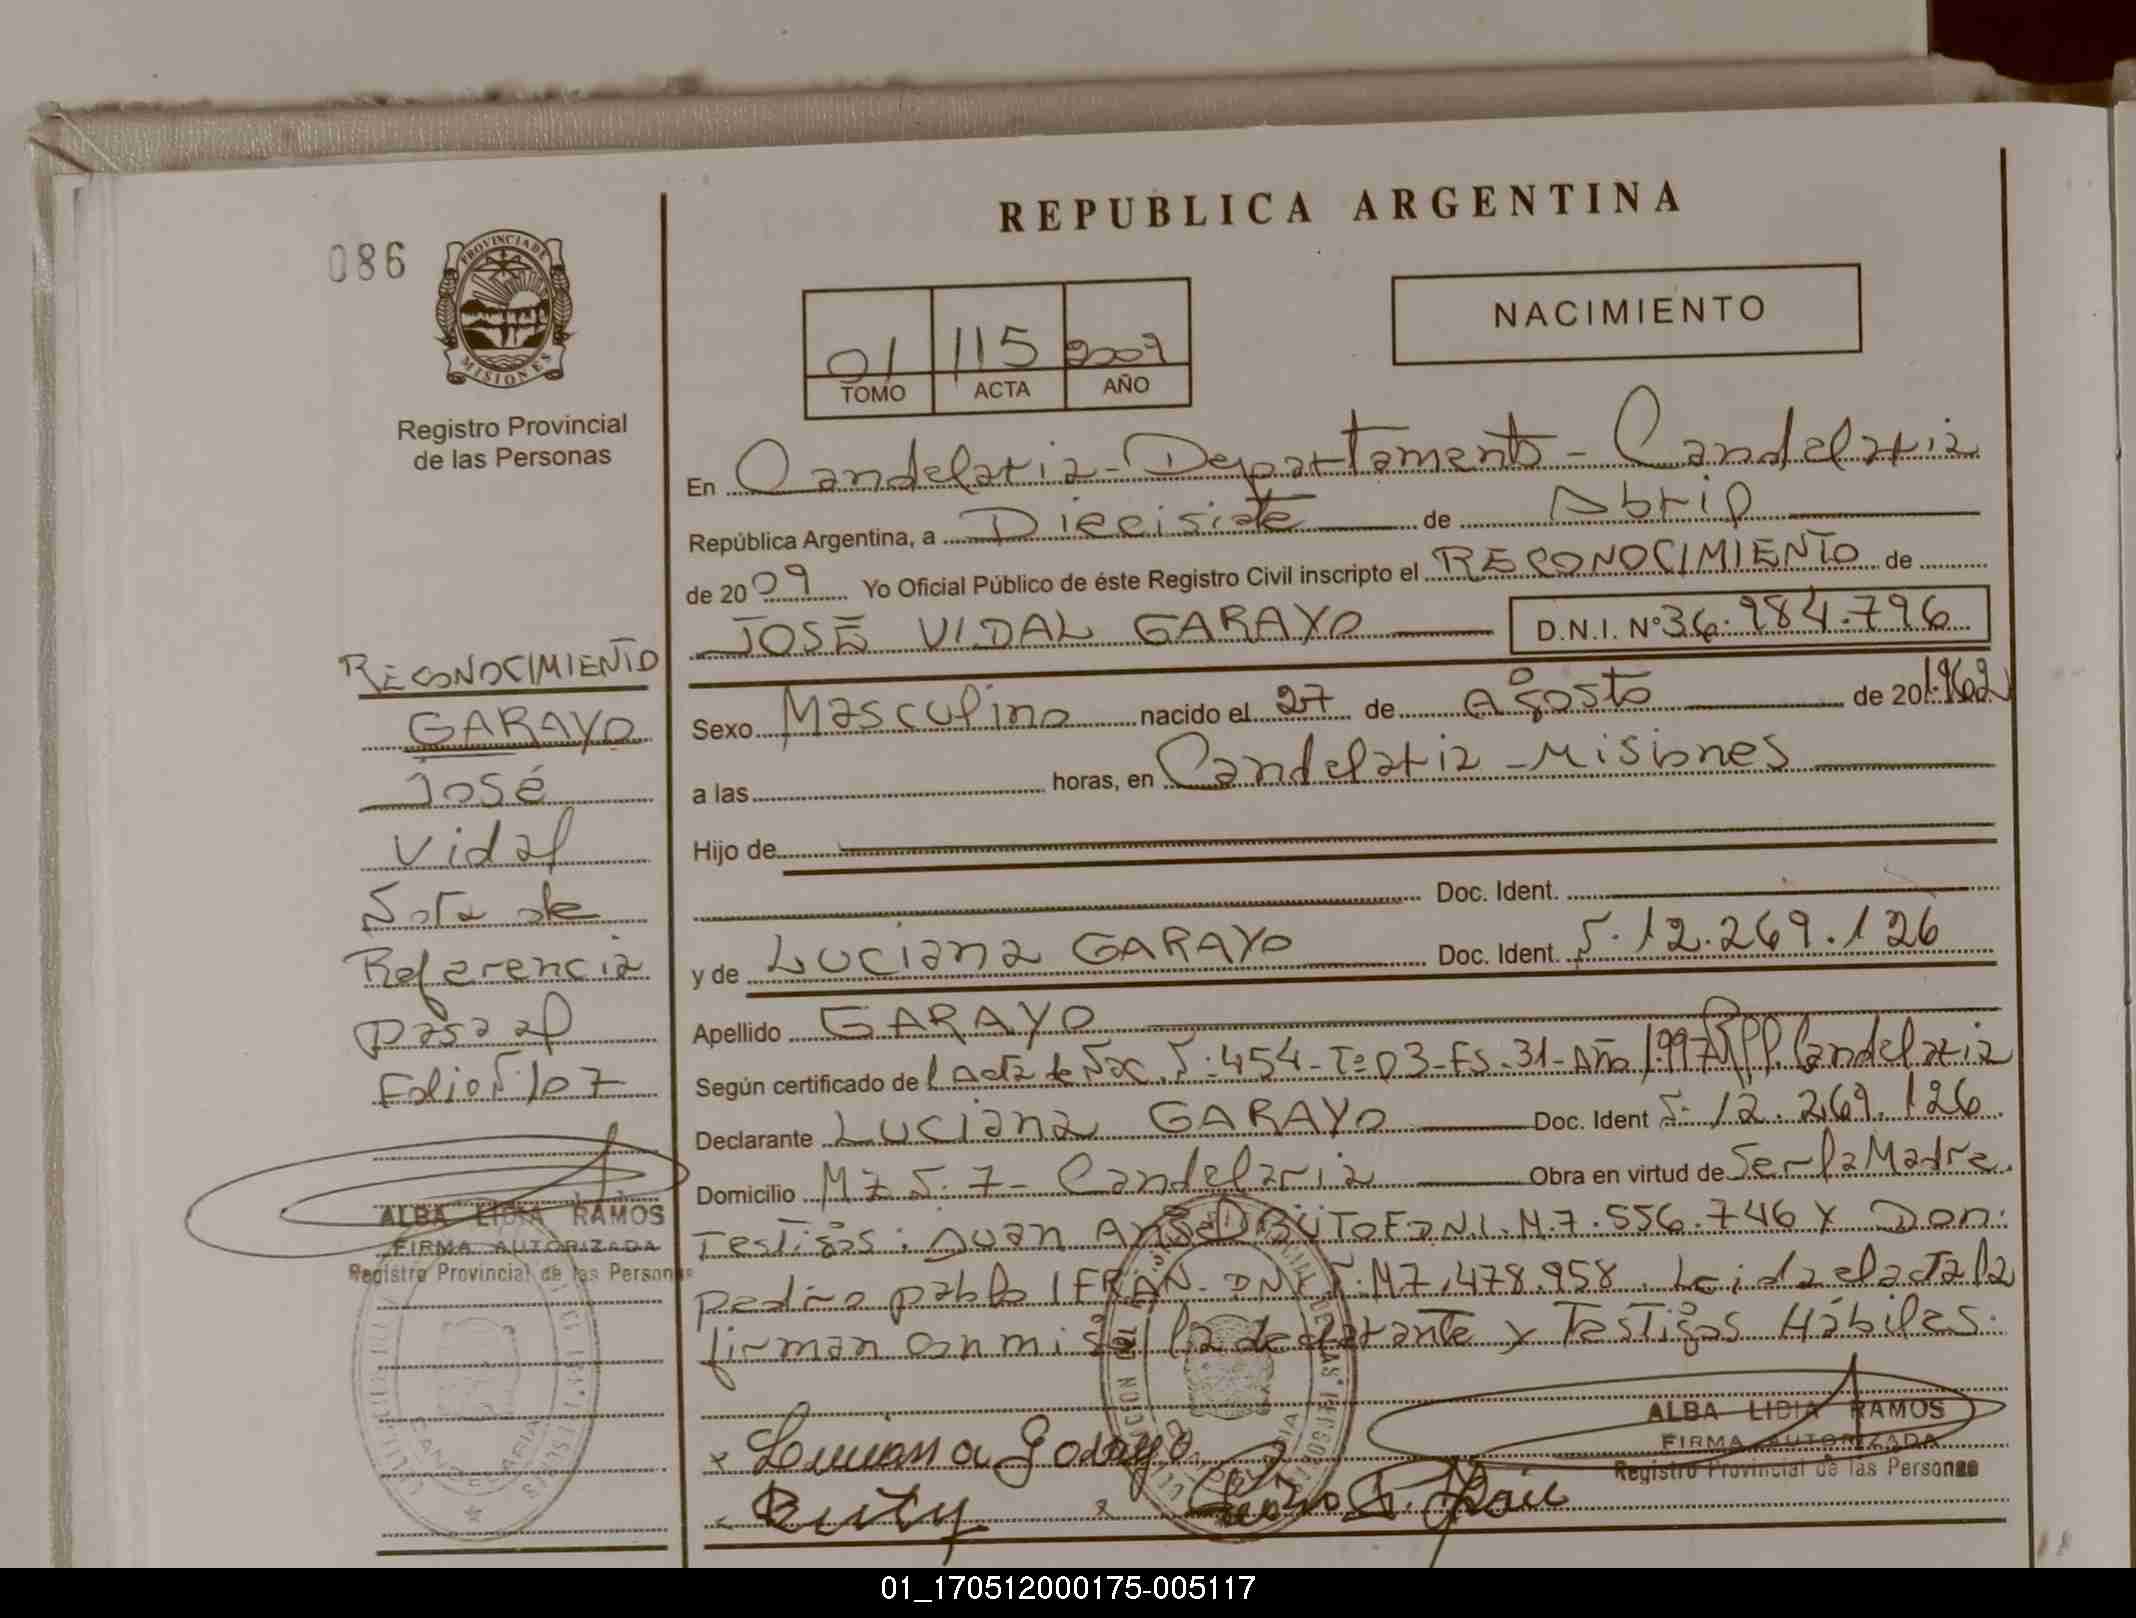 REPUBLICA ARGENTINA
086
PROVINCIA DE
MISIONES
Registro Provincial
de las Personas
01 115 2009
TOMO ACTA AÑO
NACIMIENTO
En Candelaria - Departamento - Candelaria
República Argentina, a Diecisiete de Abril
de 2009 Yo Oficial Público de éste Registro Civil inscripto el RECONOCIMIENTO de
JOSÉ VIDAL GARAYO D.N.I. Nº 36.984.796
Sexo Masculino nacido el 27 de Agosto de 201.962
a las horas, en Candelaria - Misiones
Hijo de
Doc. Ident.
y de Luciana GARAYO Doc. Ident. Nº 12.269.126
Apellido GARAYO
Según certificado de l Acta de Nac. Nº 454 - Tº 03 - Fs. 31 - Año 1.997 Candelaria
Declarante Luciana GARAYO Doc. Ident Nº 12.269.126
Domicilio Mz Nº 7 - Candelaria Obra en virtud de Ser la Madre.
Testigos: Juan Angel D.N.I. M. 7.556.746 y Don
Pedro pablo IFRAN. DNI Nº M7.478.958. Leida el acta la
firman con migo la declarante y Testigos Hábiles.
RECONOCIMIENTO
GARAYO
José
Vidal
Nota de
Referencia
pasa al
Folio Nº 107
ALBA LIDIA RAMOS
FIRMA AUTORIZADA
Registro Provincial de las Personas
CANDELARIA
ALBA LIDIA RAMOS
FIRMA AUTORIZADA
Registro Provincial de las Personas
01_170512000175-005117